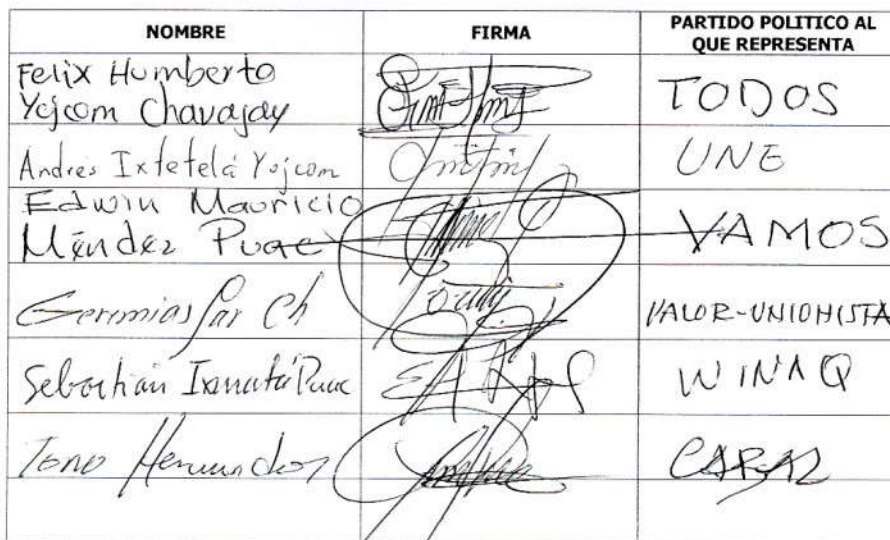 NOMBRE FIRMA PARTIDO POLITICO AL
QUE REPRESENTA
Felix Humberto
Yojcom Chavajay TODOS
Andrés Ixtetelá Yojcom UNE
Edwin Mauricio
Méndez Puac VAMOS
Geremias Par Ch VALOR-UNIONISTA
Sebastian Puac WINAQ
Tono Hernandez CABAL